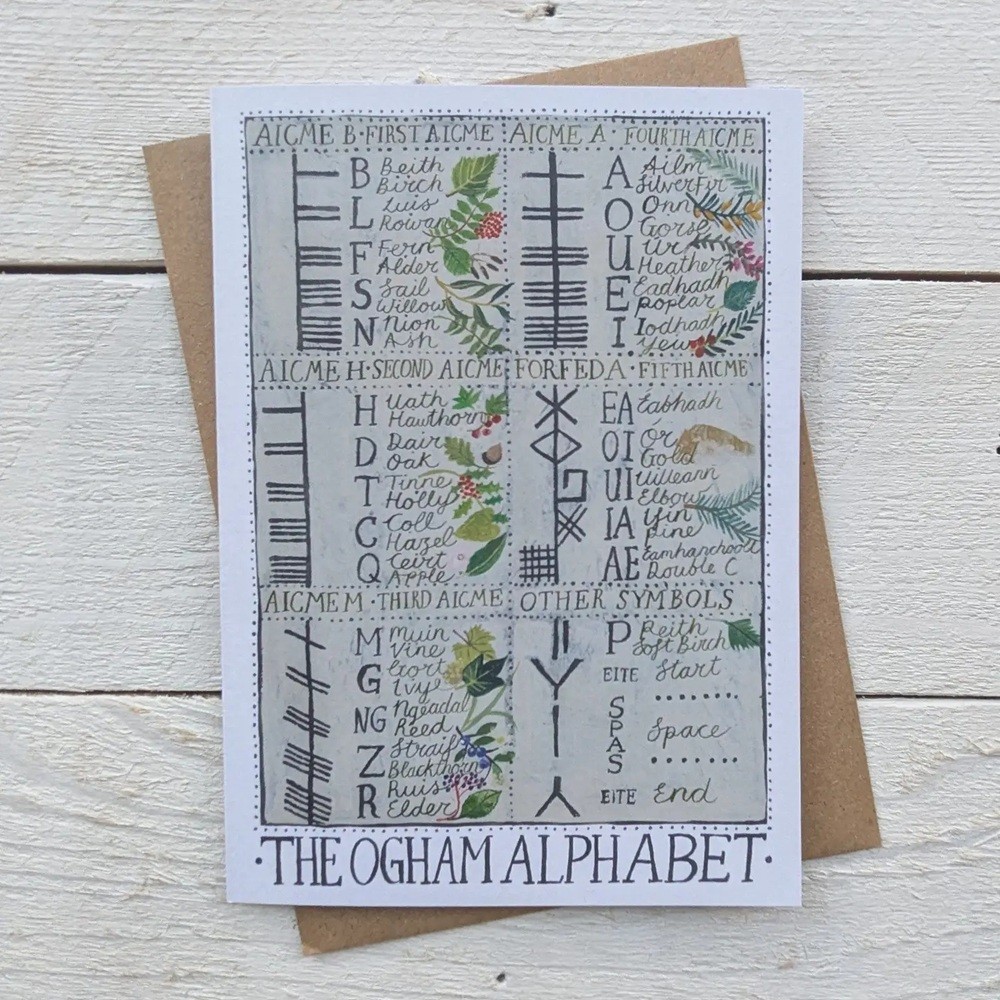 AICME B·FIRST AICME
B Beith
Birch
L Luis
Rowan
F Fern
Alder
S Sail
Willow
N Nion
Ash
AICME H·SECOND AICME
H Uath
Hawthorn
D Dair
Oak
T Tinne
Holly
C Coll
Hazel
Q Ceirt
Apple
AICME M·THIRD AICME
M Muin
Vine
G Gort
Ivy
NG Ngeadal
Reed
Z Straif
Blackthorn
R Ruis
Elder
AICME A·FOURTH AICME
A Ailm
Silver Fir
O Onn
Gorse
U Ur
Heather
E Eadhadh
poplar
I Iodhadh
Yew
FORFEDA·FIFTH AICME
EA Eabhadh
OI Ór
Gold
UI Uilleann
Elbow
IA Ifín
pine
AE Eamhancholl
Double C
OTHER SYMBOLS
P Peith
Soft Birch
EITE Start
SPAS Space
EITE End
·THE OGHAM ALPHABET·